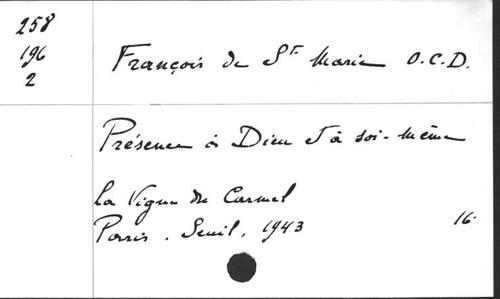 258
196
2
François de St Marie O.C.D.
Présence à Dieu et à soi-même
La Vigne du Carmel
Paris. Seuil, 1943 16